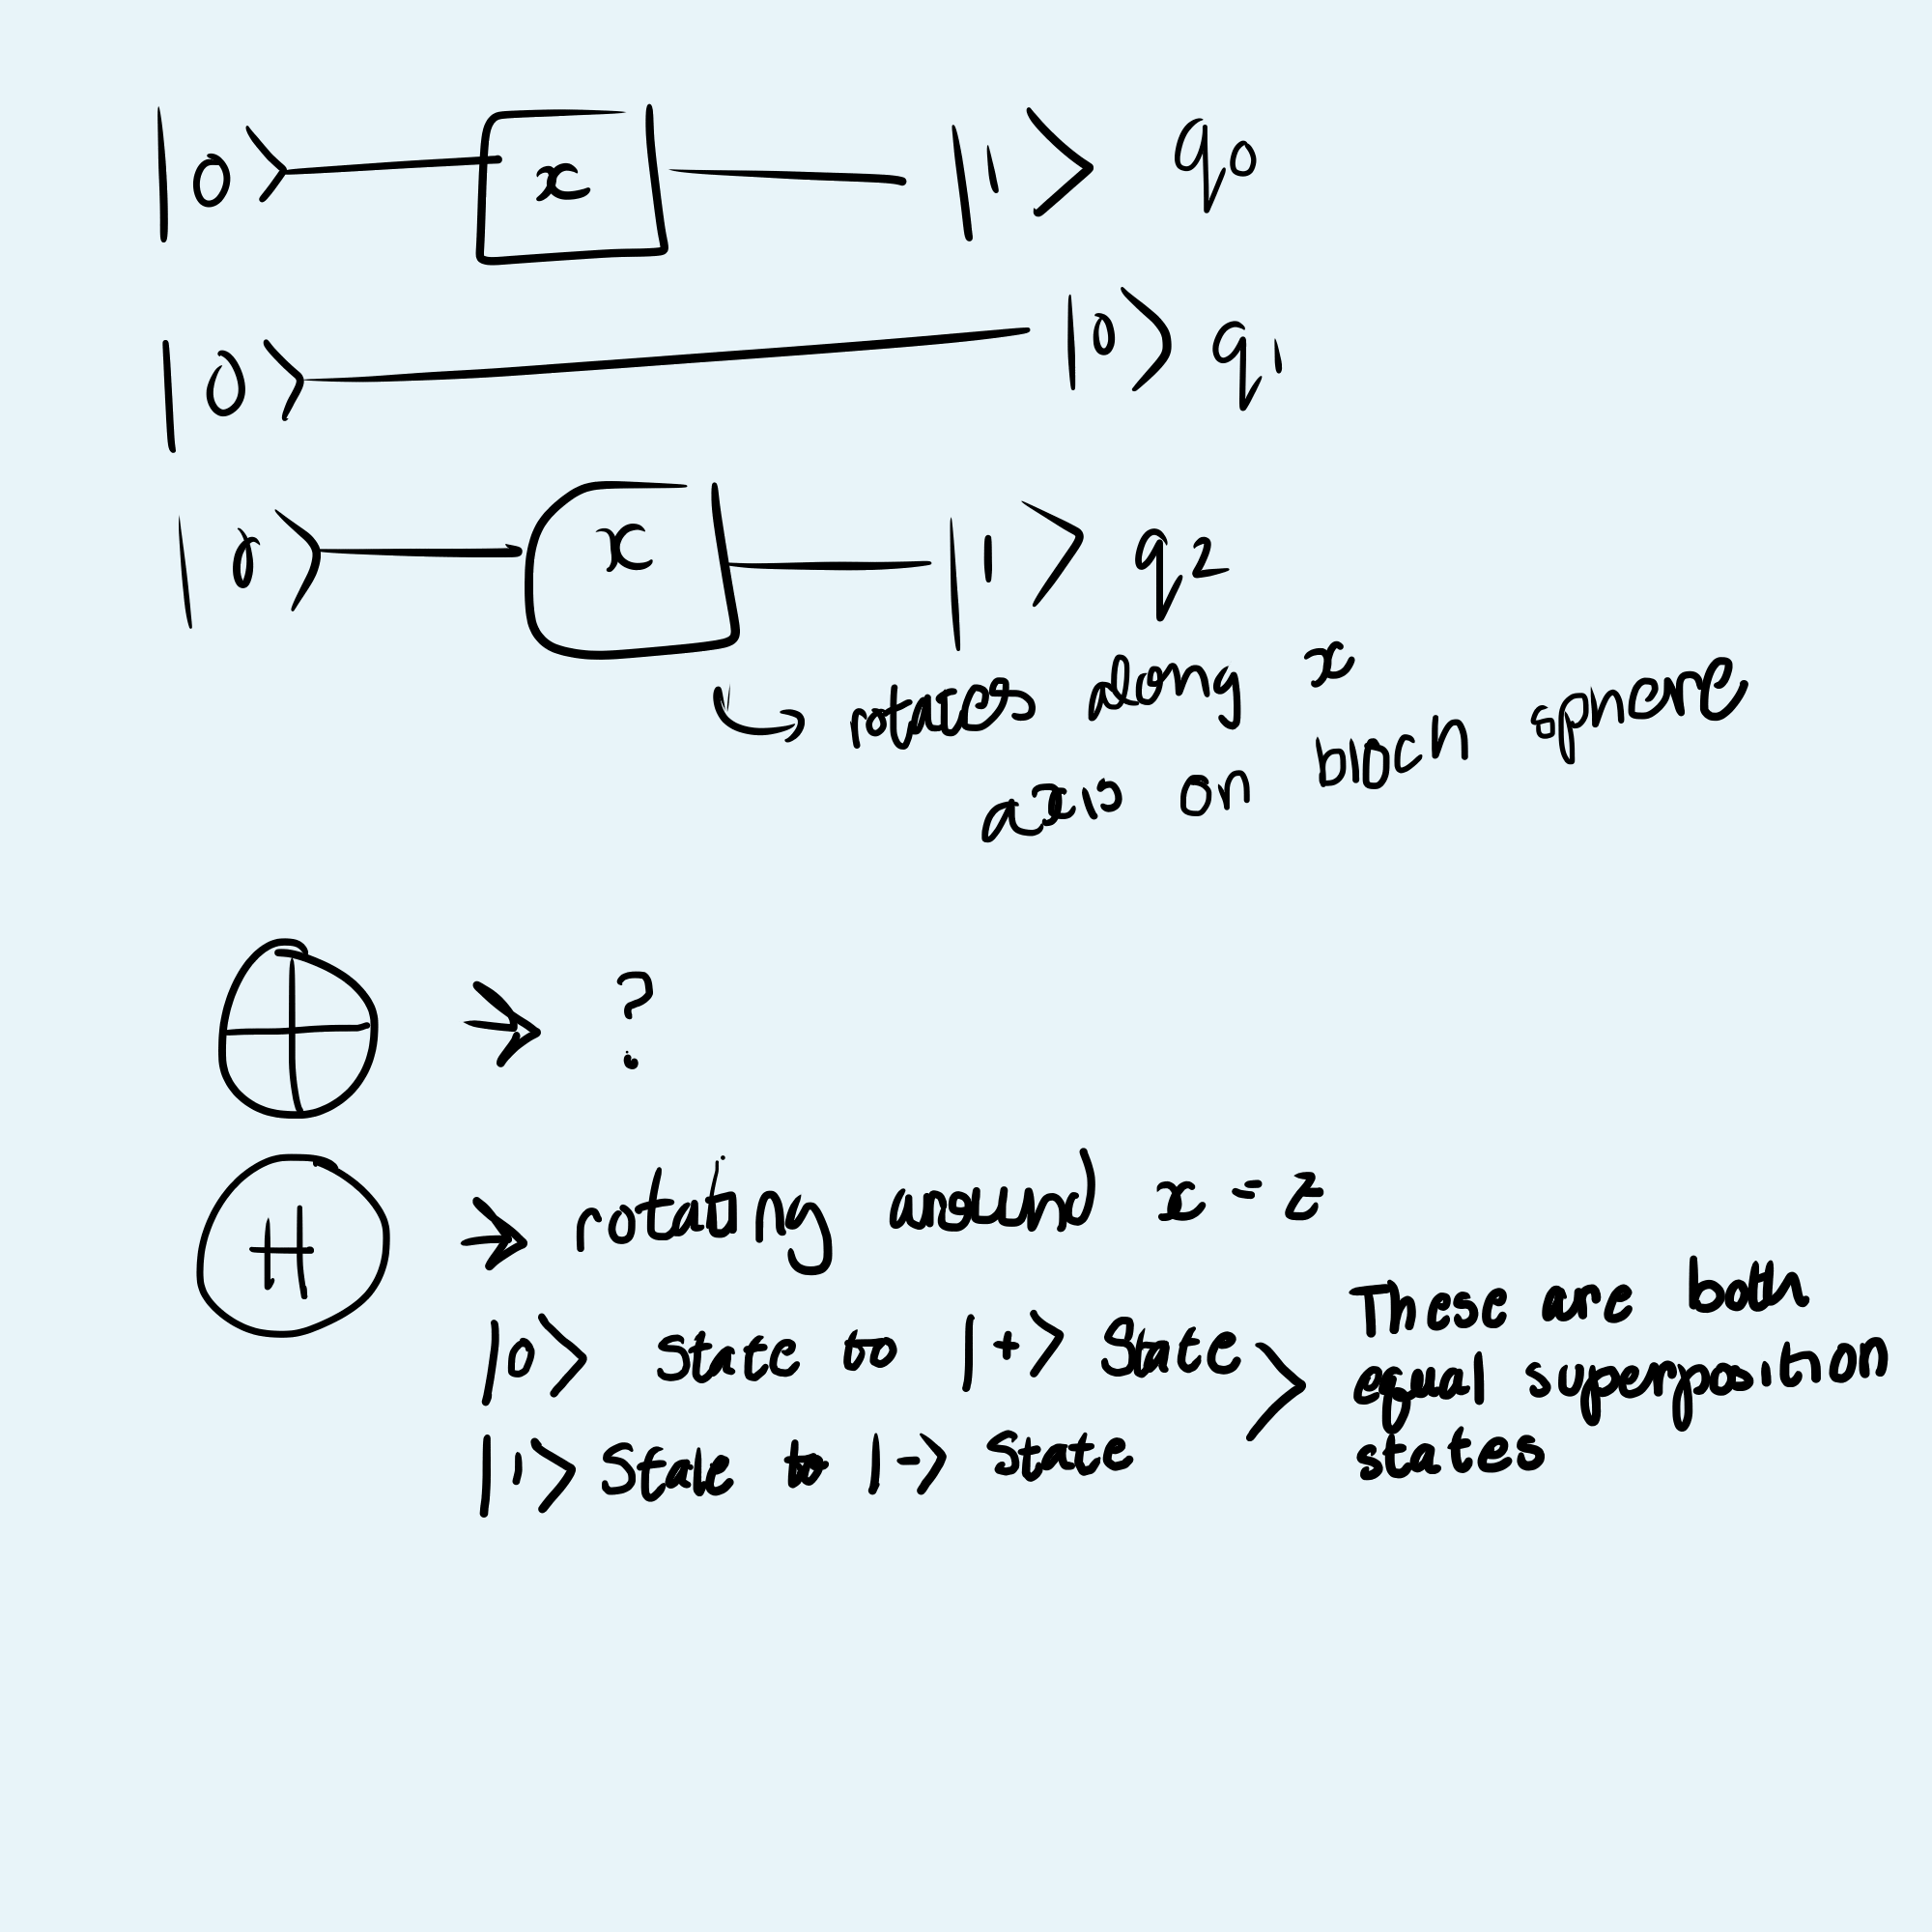 |0⟩ x |1⟩ q0
|0⟩ |0⟩ q1
|0⟩ x |1⟩ q2
↳ rotates along x
axis on bloch sphere
⊕ → ?
H → rotating around x = z
|0⟩ state to |+⟩ State
|1⟩ State to |-⟩ state
> These are both
equal superposition
states